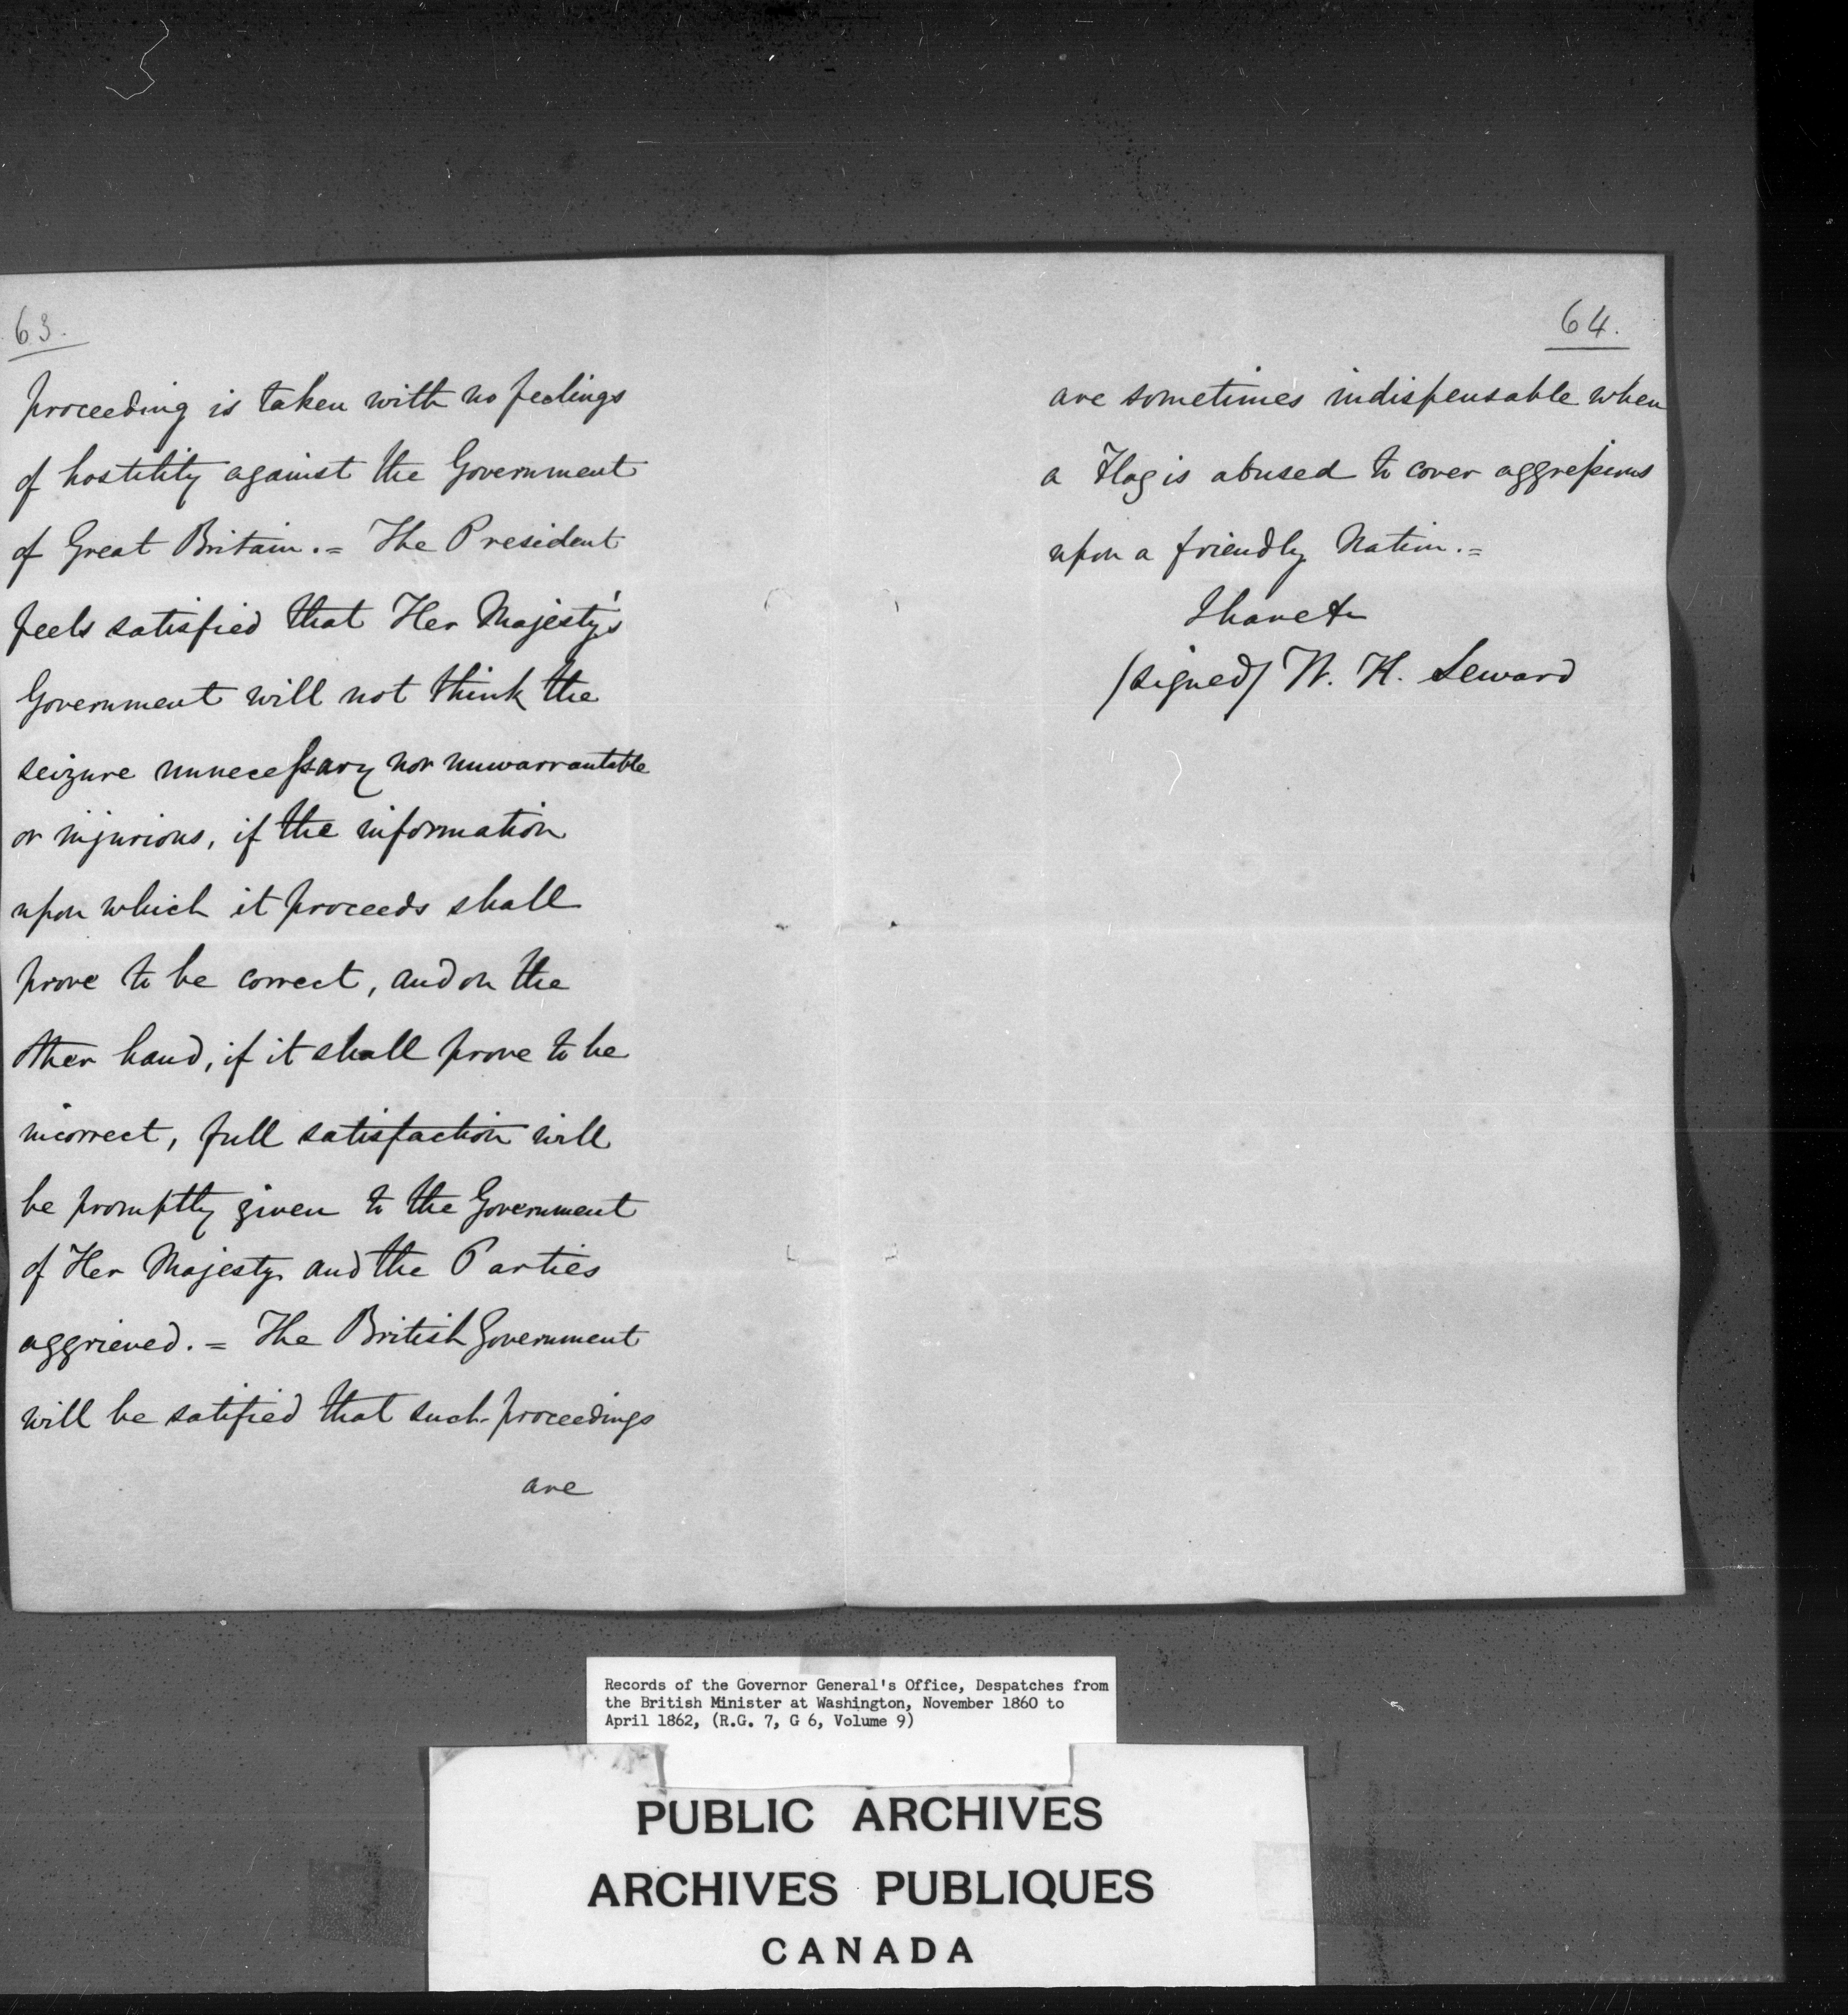 63.
proceeding is taken with no feelings
of hostility against the Government
of Great Britain. = The President
feels satisfied that Her Majesty's
Government will not think the
seizure unnecessary nor unwarrantable
or injurious, if the information
upon which it proceeds shall
prove to be correct, and on the
other hand, if it shall prove to be
incorrect, full satisfaction will
be promptly given to the Government
of Her Majesty and the Parties
aggrieved. = The British Government
will be satified that such proceedings
are
64.
are sometimes indispensable when
a Flag is abused to cover aggressions
upon a friendly Nation. =
I have &c
(signed) W. H. Seward
Records of the Governor General's Office, Despatches from
the British Minister at Washington, November 1860 to
April 1862, (R.G. 7, G 6, Volume 9)
PUBLIC ARCHIVES
ARCHIVES PUBLIQUES
CANADA